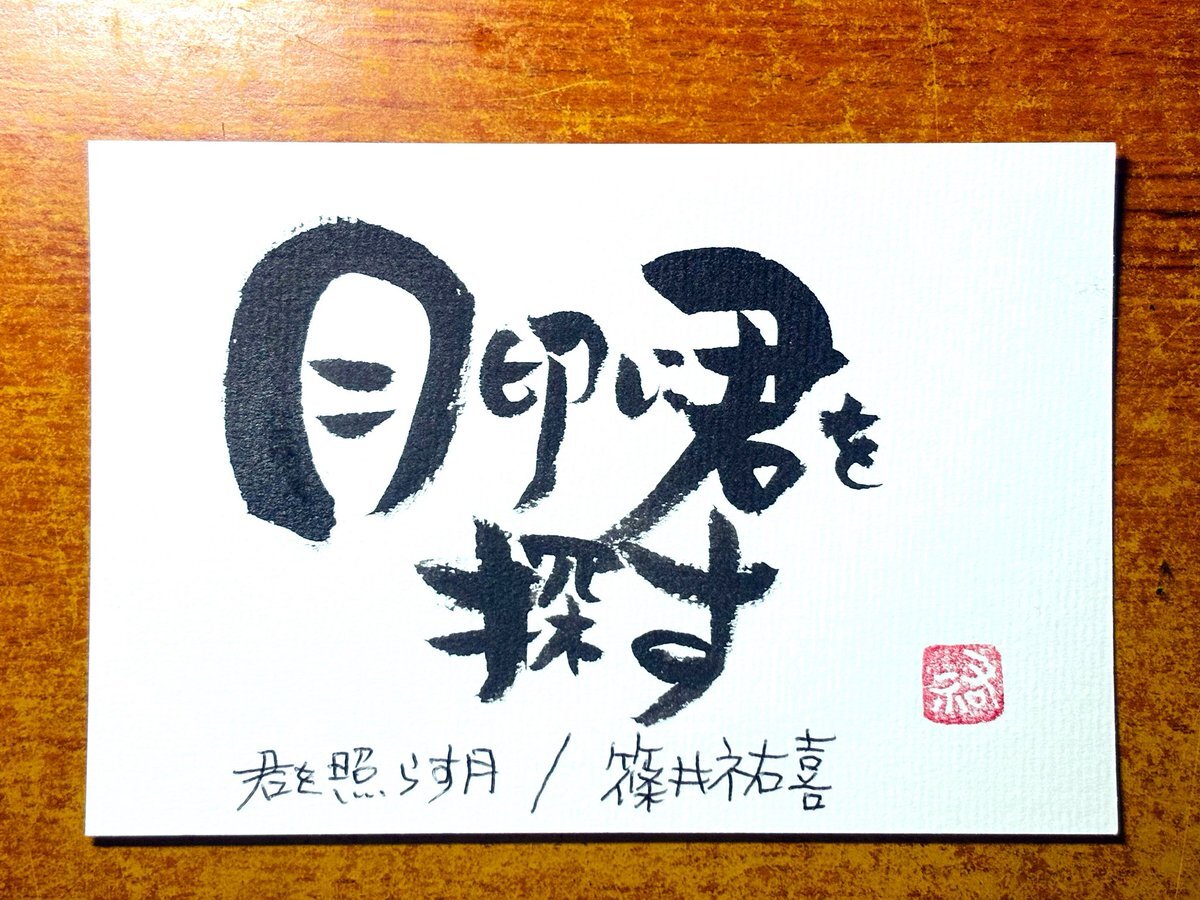 月印に君を
探す
君を照らす月 / 篠井祐喜